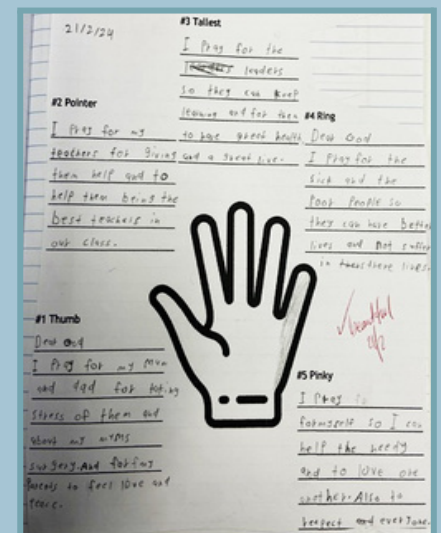 21/2/24
#3 Tallest
I Pray for the
leaders
so they can keep
learning and for them
to have great health
and a great live.
#2 Pointer
I Pray for my
teachers for giving
them help and to
help them being the
best teachers in
our class.
#4 Ring
Dear God
I Pray for the
sick and the
poor people so
they can have better
lives and not suffer
in there lives.
#1 Thumb
Dear God
I Pray for my mum
and dad for taking
stress of them and
about my mums
surgery. And for my
Parents to feel love and
Peace.
✓ Beautiful
#5 Pinky
I Pray
for myself so I can
help the needy
and to love one
another. Also to
respect everyone.